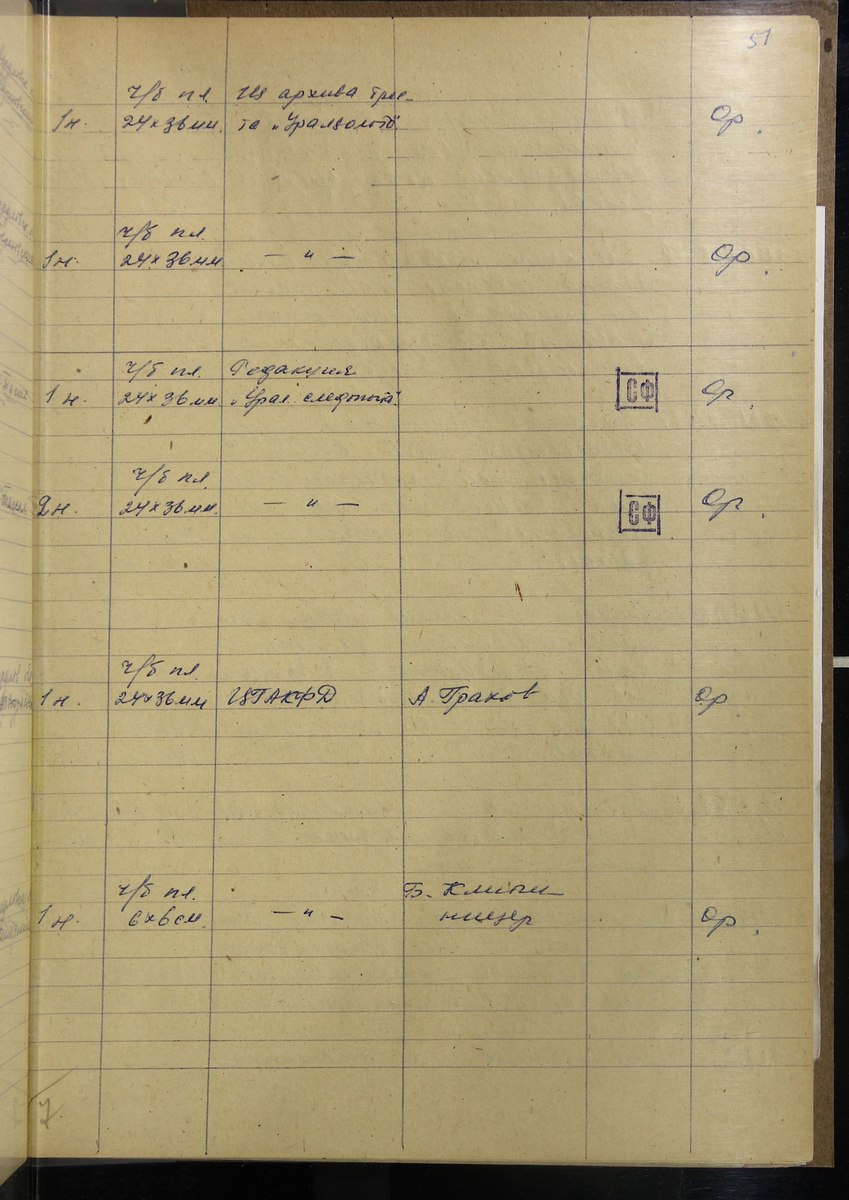 51
ч/б пл. Из архива трес-
1н. 24×36мм. та „Уралзолото" Ор.
ч/б пл.
1н. 24×36мм. — „ — Ор.
ч/б пл. Редакция
1н. 24×36мм „Урал. следопыт". СФ Ор
ч/б пл.
2н. 24×36мм. — „ — СФ Ор
ч/б пл.
1н. 24×36мм ЦГАКФД А. Грахов Ор
ч/б пл. Б. Клипи-
1н. 6×6см. — „ — ницер Ор.